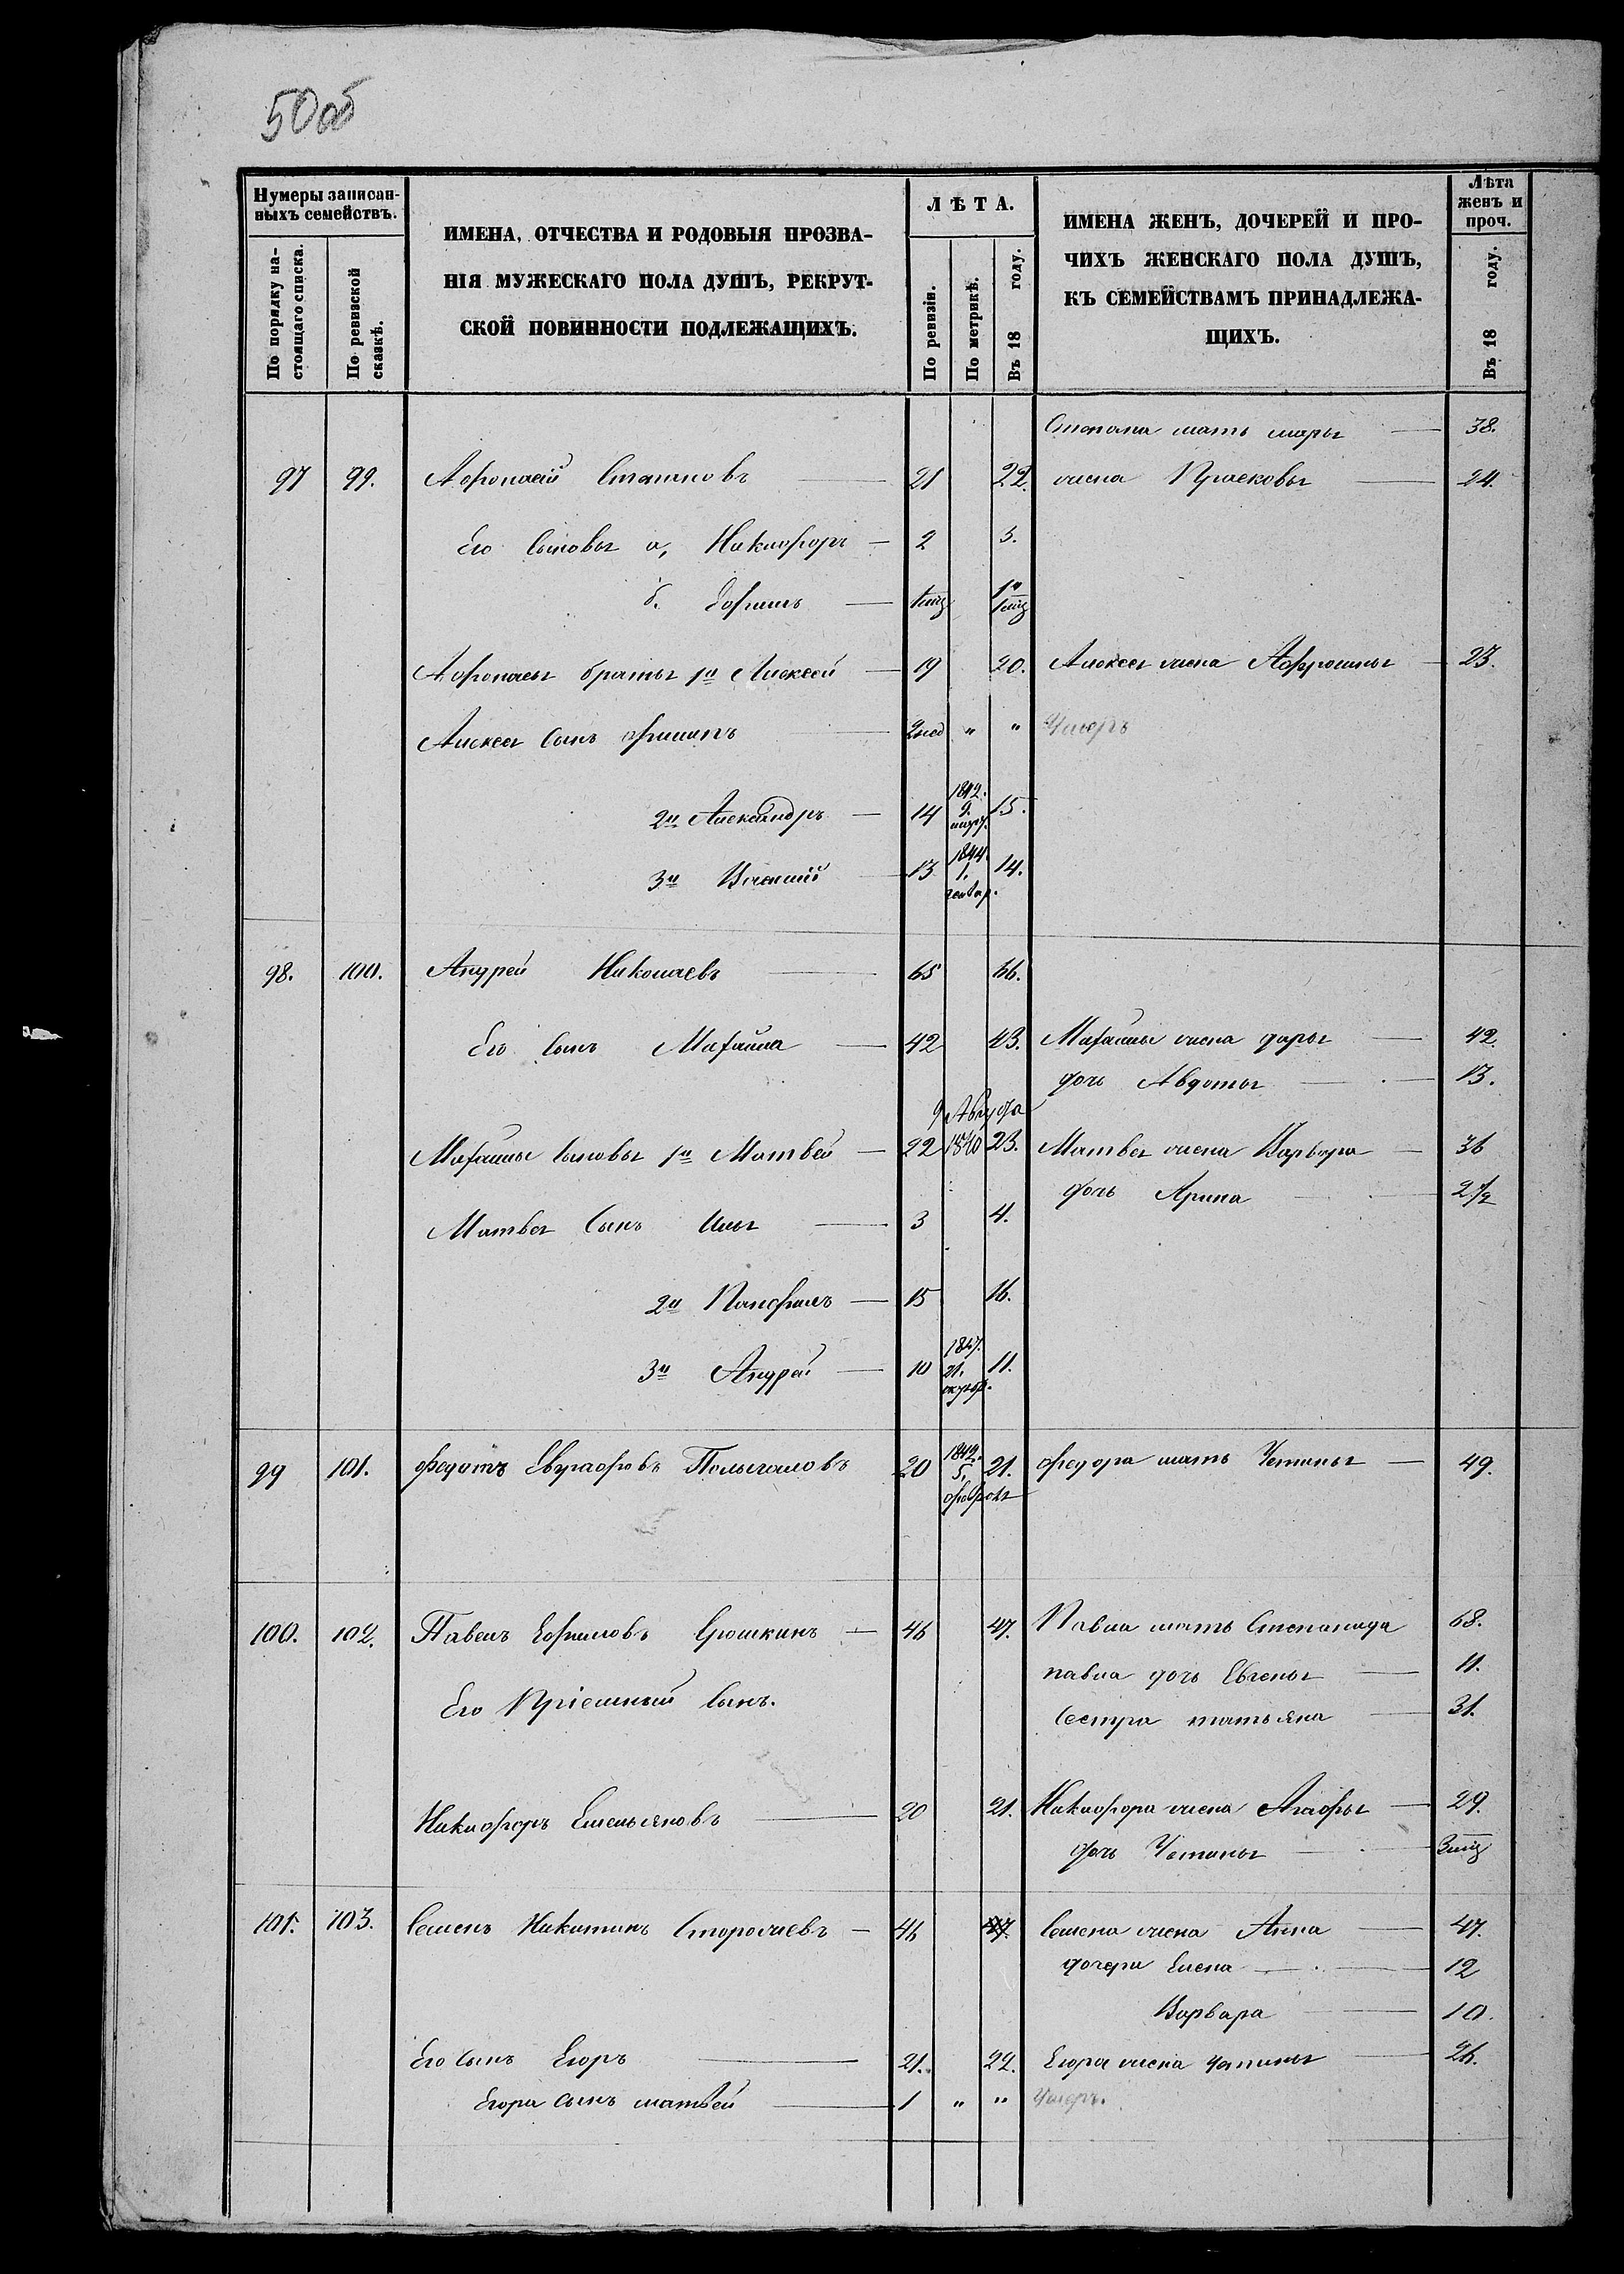 50 об
Нумеры записан-
ныхъ семействъ.
По порядку на-
стоящаго списка.
По ревизской
сказкѣ.
ИМЕНА, ОТЧЕСТВА И РОДОВЫЯ ПРОЗВА-
НІЯ МУЖЕСКАГО ПОЛА ДУШЪ, РЕКРУТ-
СКОЙ ПОВИННОСТИ ПОДЛЕЖАЩИХЪ.
ЛѢТА.
По ревизіи.
По метрикѣ.
Въ 18 году.
ИМЕНА ЖЕНЪ, ДОЧЕРЕЙ И ПРО-
ЧИХЪ ЖЕНСКАГО ПОЛА ДУШЪ,
КЪ СЕМЕЙСТВАМЪ ПРИНАДЛЕЖА-
ЩИХЪ.
Лѣта
женъ и
проч.
Въ 18 году.
Степана мать марья 38.
97 99. Афонасій Степановъ 21 22. жена Прасковья 24.
Его сыновья а, Никифоръ 2 3.
б. Ефимъ
Афонасья братья 1й Алексей 19 20. Алексея жена Афросинья 23.
Алексея сынъ филипъ 2нед " " Умеръ
2й Александръ 14 1842. 9. 15.
3й Василій 13 1844 1. генвар. 14.
98. 100. Андрей Николаевъ 65 66.
Его сынъ Михайла 42 43. Михайлы жена дарья 42.
дочь Авдотья 13.
9 Августа
Михайлы сыновья 1й Матвей 22 1840 23. Матвея жена Варвара 36
дочь Арина 2 1/2
Матвея сынъ Илья 3 4.
2й Панфилъ 15 16.
3й Андрей 10 1847. 21. октяб. 11.
99 101. Федотъ Евграфовъ 20 5, февраля 21. Федора мать Устинья 49.
100. 102. Павелъ Ефимовъ Ерошкинъ 46 47. Павла мать Степанида 68.
павла дочь Евгенья 11.
Его Пріемный сынъ.
сестра татьяна 31.
Никифоръ Емельяновъ 20 21. Никифора жена Агафья 29.
дочь Устинья 3мѣц
101. 103. Семенъ Никитинъ Сторожевъ 46 47. Семена жена Анна 47.
дочери Елена 12
Варвара 10.
Его сынъ Егоръ 21. 22. Егора жена устинья 26.
Егора сынъ матвей 1 " " Умеръ.